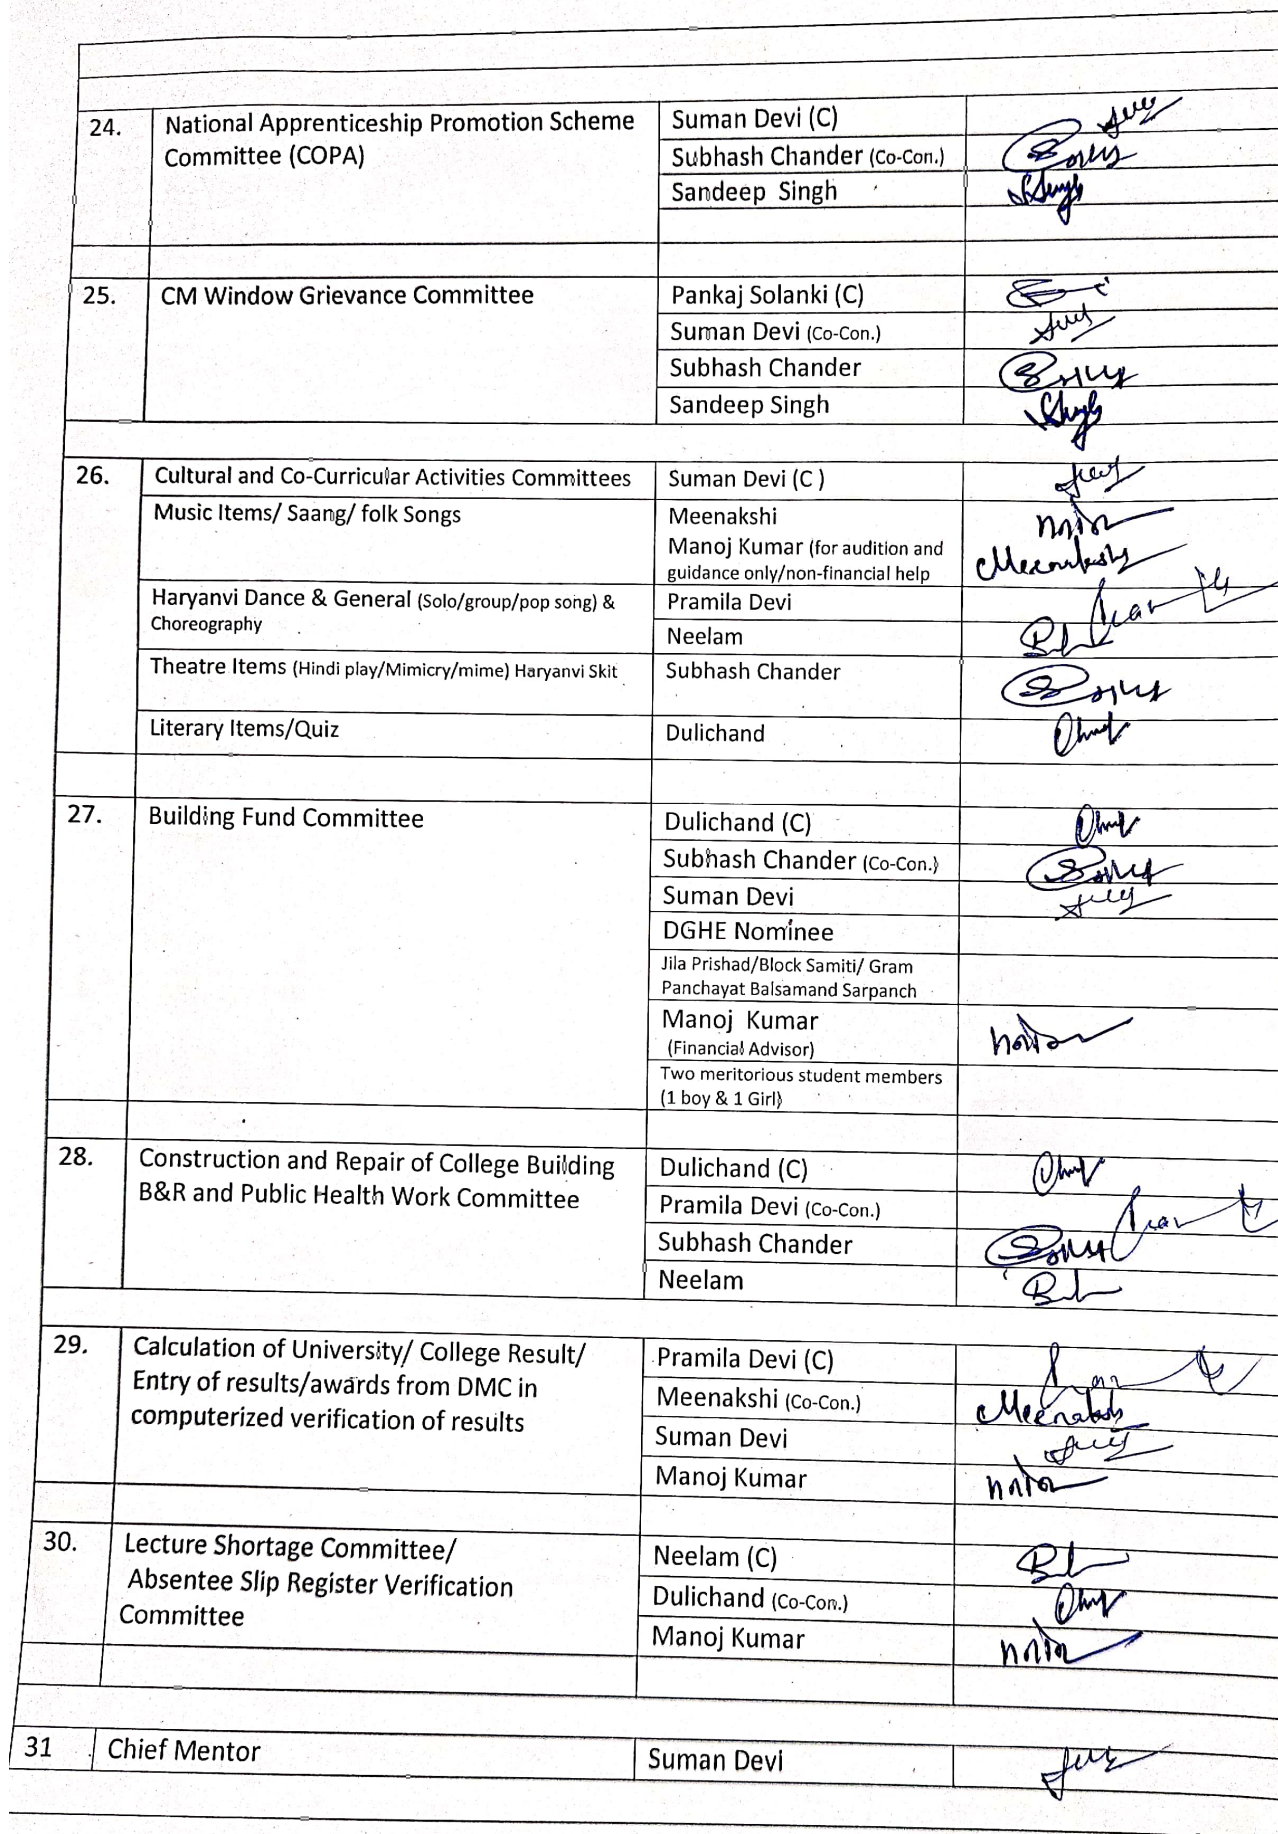 24. National Apprenticeship Promotion Scheme Suman Devi (C)
Committee (COPA) Subhash Chander (Co-Con.)
Sandeep Singh
25. CM Window Grievance Committee Pankaj Solanki (C)
Suman Devi (Co-Con.)
Subhash Chander
Sandeep Singh
26. Cultural and Co-Curricular Activities Committees Suman Devi (C )
Music Items/ Saang/ folk Songs Meenakshi
Manoj Kumar (for audition and
guidance only/non-financial help
Meenakshi
Haryanvi Dance & General (Solo/group/pop song) & Pramila Devi
Choreography Neelam
Theatre Items (Hindi play/Mimicry/mime) Haryanvi Skit Subhash Chander
Literary Items/Quiz Dulichand
27. Building Fund Committee Dulichand (C)
Subhash Chander (Co-Con.)
Suman Devi
DGHE Nominee
Jila Prishad/Block Samiti/ Gram
Panchayat Balsamand Sarpanch
Manoj Kumar
(Financial Advisor)
Two meritorious student members
(1 boy & 1 Girl)
28. Construction and Repair of College Building Dulichand (C)
B&R and Public Health Work Committee Pramila Devi (Co-Con.)
Subhash Chander
Neelam
29. Calculation of University/ College Result/ Pramila Devi (C)
Entry of results/awards from DMC in Meenakshi (Co-Con.) Meenakshi
computerized verification of results Suman Devi
Manoj Kumar
30. Lecture Shortage Committee/ Neelam (C)
Absentee Slip Register Verification Dulichand (Co-Con.)
Committee Manoj Kumar
31 Chief Mentor Suman Devi